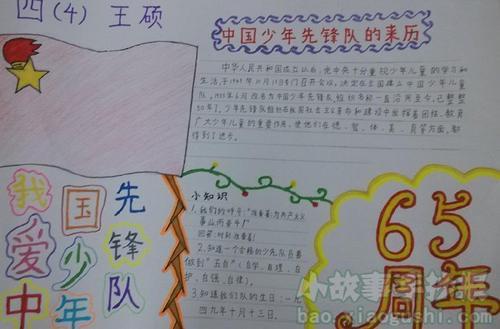 四(4) 王硕
中国少年先锋队的来历
中华人民共和国成立以后,党中央十分重视少年儿童的学习和
生活,于1949年10月13日专门召开会议,决定在全国建立中国少年儿童
队,1953年6月改名为中国少年先锋队,
广大少年儿童的重要作用,使他们在德、智、体、美、育等方面,都
得到了进步。
小知识
1、我们的呼号:"准备着:为共产主义
事业而奋斗!"
回答:时刻准备着!
2、知道一个合格的少先队员要
做到"五自"(自学、自理、自
护、自强、自律)。
3、知道我们队的生日:一九
四九年十月十三日。
我爱中
国少年
先锋队
65
周年
小故事手抄报
bao.xiaogushi.com